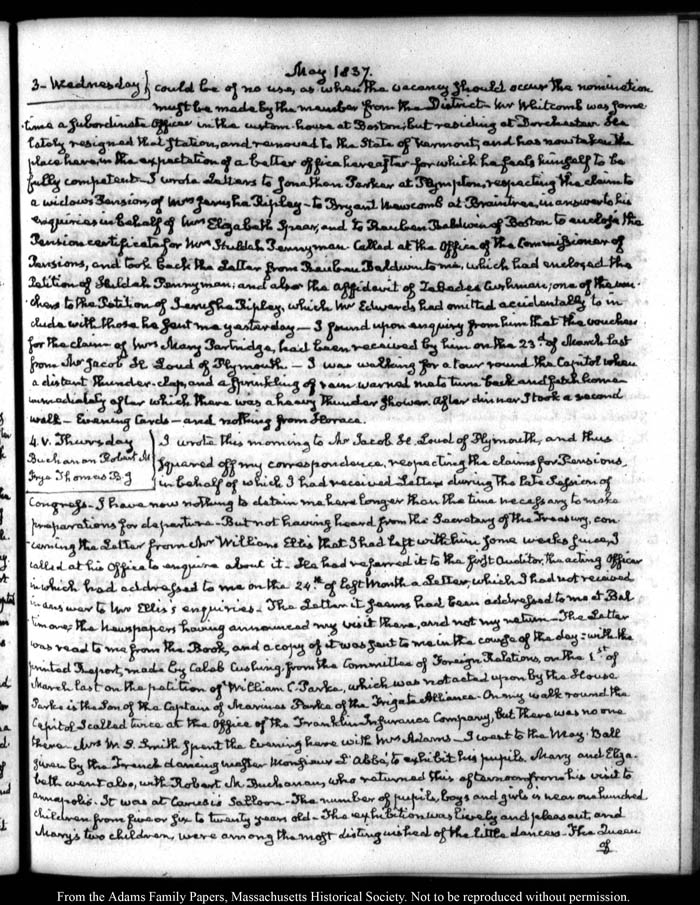 May 1837.
3. Wednesday} could be of no use, as when the vacancy should occur the nomination
must be made by the member from the District. Mr Whitcomb was some
time a subordinate Officer in the custom-house at Boston; but residing at Dorchester. He
lately resigned that Station, and removed to the State of Vermont, and has now taken the
place here, in the expectation of a better office hereafter for which he feels himself to be
fully competent. I wrote Letters to Jonathan Parker at Plympton, respecting the claim to
a widows Pension, of Mrs Jerusha Ripley—to Bryant Newcomb at Braintree, in answer to his
enquiries in behalf of Mrs Elizabeth Spear, and to Reuben Baldwin of Boston to enclose the
Pension certificate for Mrs Huldah Pennyman. Called at the Office of the Commissioner of
Pensions, and took back the Letter from Reuben Baldwin to me, which had enclosed the
Petition of Huldah Pennyman; and also the affidavit of Zebedee Cushman; one of the vou-
chers to the Petition of Jerusha Ripley, which Mr Edwards had omitted accidentally to in
clude with those he sent me yesterday—I found upon enquiry from him that the voucher
for the claim of Mrs Mary Partridge, had been received by him on the 23d. of March last
from Mr Jacob H. Loud of Plymouth—I was walking for a tour round the Capitol when
a distant thunder-clap, and a sprinkling of rain warned me to turn back and home
immediately after which there was a heavy thunder shower. After dinner I took a second
walk—Evening Cards—and nothing from Horace.
4. V. Thursday
Buchanan Robert M
Frye Thomas B. J
I wrote this morning to Mr Jacob H. Loud of Plymouth, and thus
squared off my correspondence, respecting the claims for Pensions,
in behalf of which I had received Letters during the late Session of
Congress—I have now nothing to detain me here longer than the time necessary to make
preparations for departure—But not having heard from the Secretary of the Treasury, con
cerning the Letter from Mr William Ellis that I had left with him some weeks since, I
called at his Office to enquire about it—He had referred it to the first Auditor, the acting Officer
in which had addressed to me on the 24th. of last Month a Letter, which I had not received
in answer to Mr Ellis's enquiries—The Letter it seems had been addressed to me at Bal
timore; the Newspapers having announced my visit there, and not my return—The Letter
was read to me from the Book, and a copy of it was sent to me in the course of the day: with the
printed Report, made by Caleb Cushing, from the Committee of Foreign Relations, on the 1st. of
March last on the petition of William C. Parke, which was not acted upon by the House
Parke is the Son of the Captain of Marines Parke of the Frigate Alliance. On my walk round the
Capitol I called twice at the Office of the Franklin Insurance Company, but there was no one
there. Mrs W. S. Smith spent the Evening here with Mrs Adams—I went to the May-Ball
given by the French dancing master Monsieur L'Abbé, to exhibit his pupils. Mary and Eliza-
beth went also, with Robert M. Buchanan, who returned this afternoon from his visit to
Annapolis. It was at Carusi's Salloon—The number of pupils, boys and girls is near one hundred
children from five or six to twenty years old—The exhibition was lively and pleasant, and
Mary's two children, were among the most distinguished of the little dancers—The Queen
of
From the Adams Family Papers, Massachusetts Historical Society. Not to be reproduced without permission.